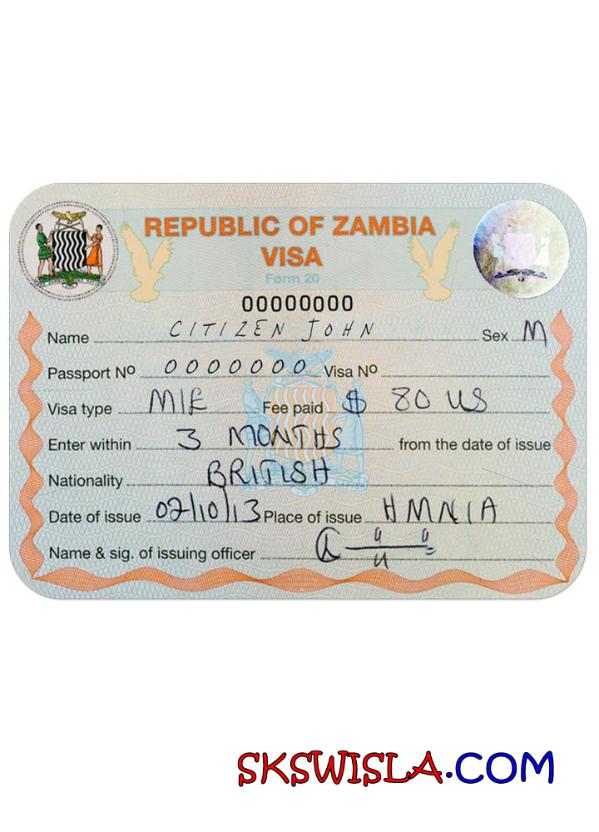 REPUBLIC OF ZAMBIA
VISA
Form 20
00000000
Name CITIZEN JOHN Sex M
Passport Nº 0000000 Visa Nº
Visa type MIE Fee paid $ 80 US
Enter within 3 MONTHS from the date of issue
Nationality BRITISH
Date of issue 02/10/13 Place of issue HMNIA
Name & sig. of issuing officer
SKSWISLA.COM